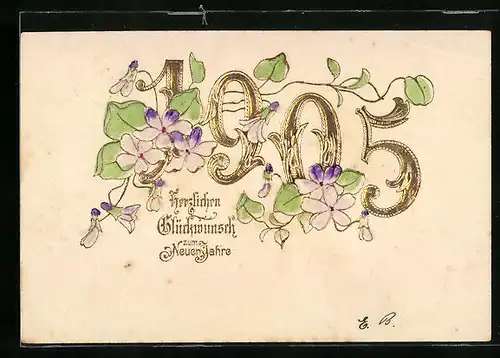 1905
Herzlichen
Glückwunsch
zum
Neuen Jahre
E. B.